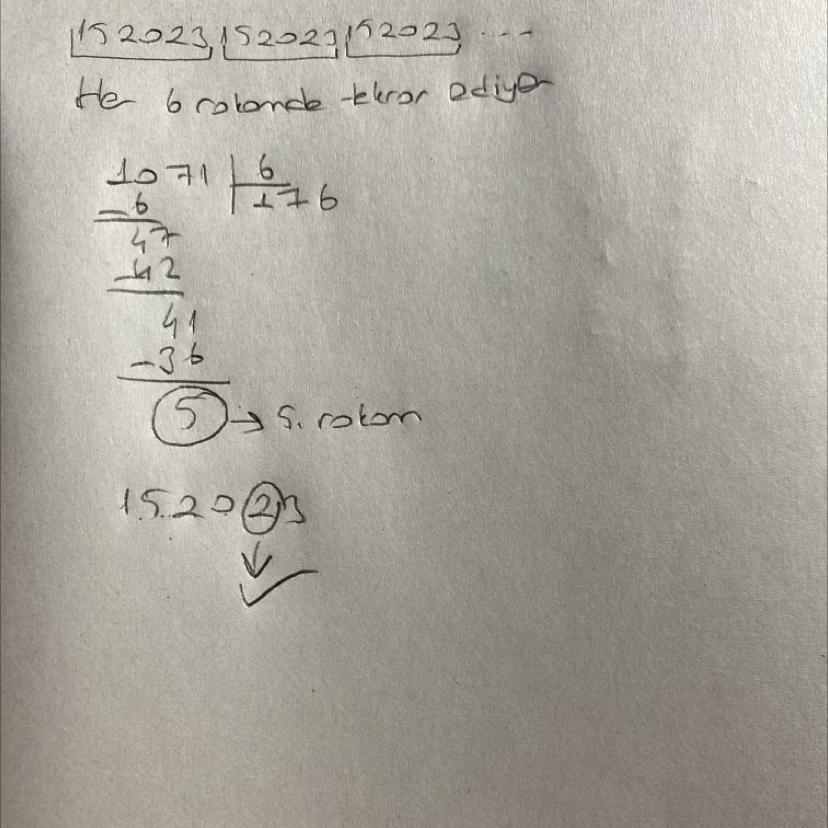 152023 152023 152023 ...
Her 6 rakamda tekrar ediyor
1071 | 6
- 6 176
47
- 42
41
- 36
5 → 5. rakam
152023